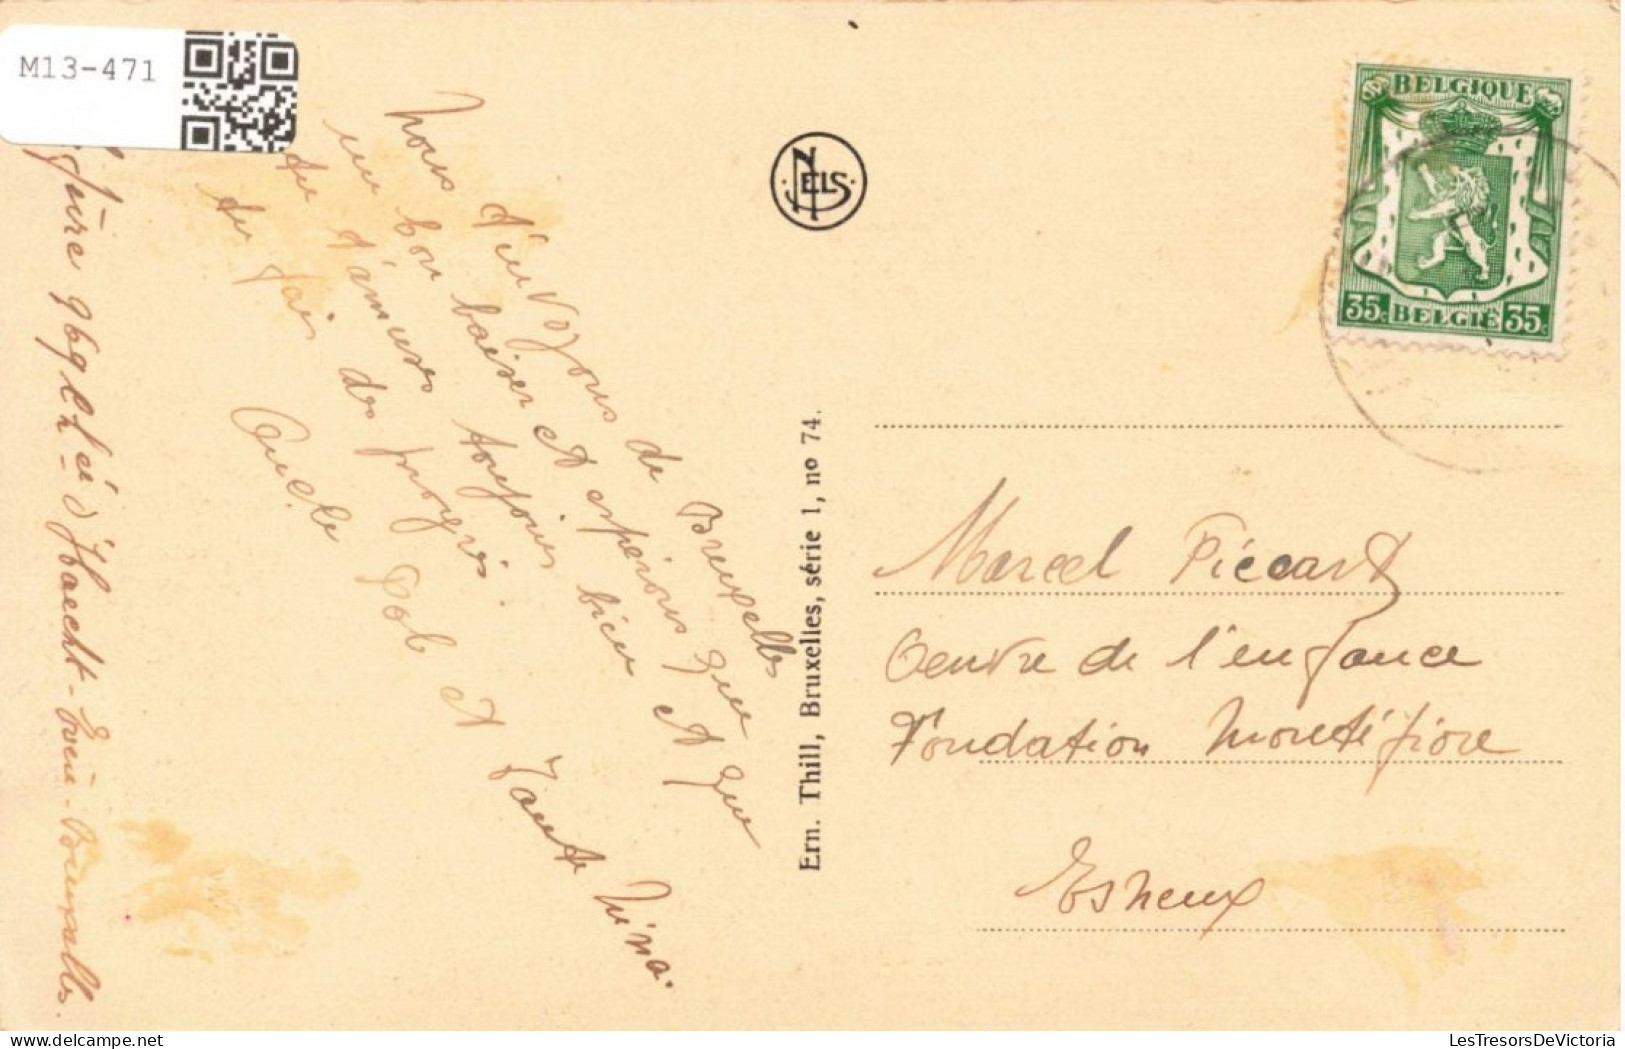 M13-471
Nous t'envoyons de Bruxelles
un bon baiser et espérons que
tu t'amuses toujours bien et que
tu fais des progrès.
Oncle Pol et Tante Nina.
Haecht - Evere - Bruxelles.
NELS
Ern. Thill, Bruxelles, série 1, no 74.
BELGIQUE
35c BELGIË 35c
Marcel Piccart
Oeuvre de l'enfance
Fondation Montéfiore
Esneux
LesTresorsDeVictoria